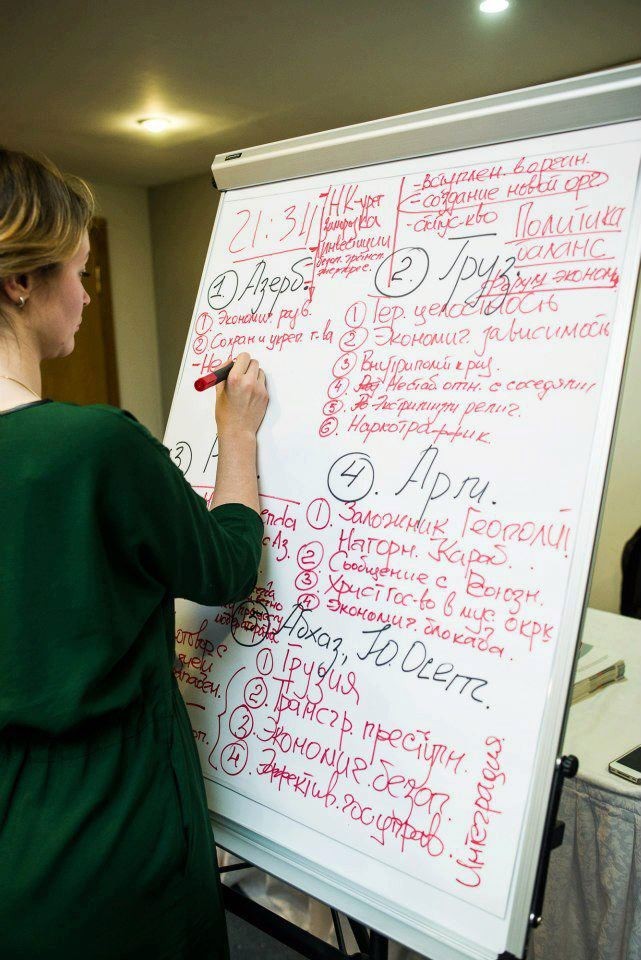 21:31
НК-урег
инвестиции
- создание новой орг
- статус-кво
Политика
баланс
форум эконом
① Азерб.
① Экономич. разв.
② Сохран и укреп. т-ва
- Не
②. Груз.
① Тер. целостность
② Экономич. зависимость
③ Внутриполит криз.
④ Нестаб отн. с соседями
⑤ Экстремизм религ.
⑥ Наркотраффик.
③ А
④. Арм.
① Заложник Геополит
Нагорн. Караб.
② Сообщение с Внешн.
③ Христ гос-во в мус. окр
④ Экономич. блокада.
Абхаз., Ю.Осет.
① Грузия
②. Трансгр. преступн.
③ Экономич. безоп.
④ Эффектив. гос управ.
Интеграция